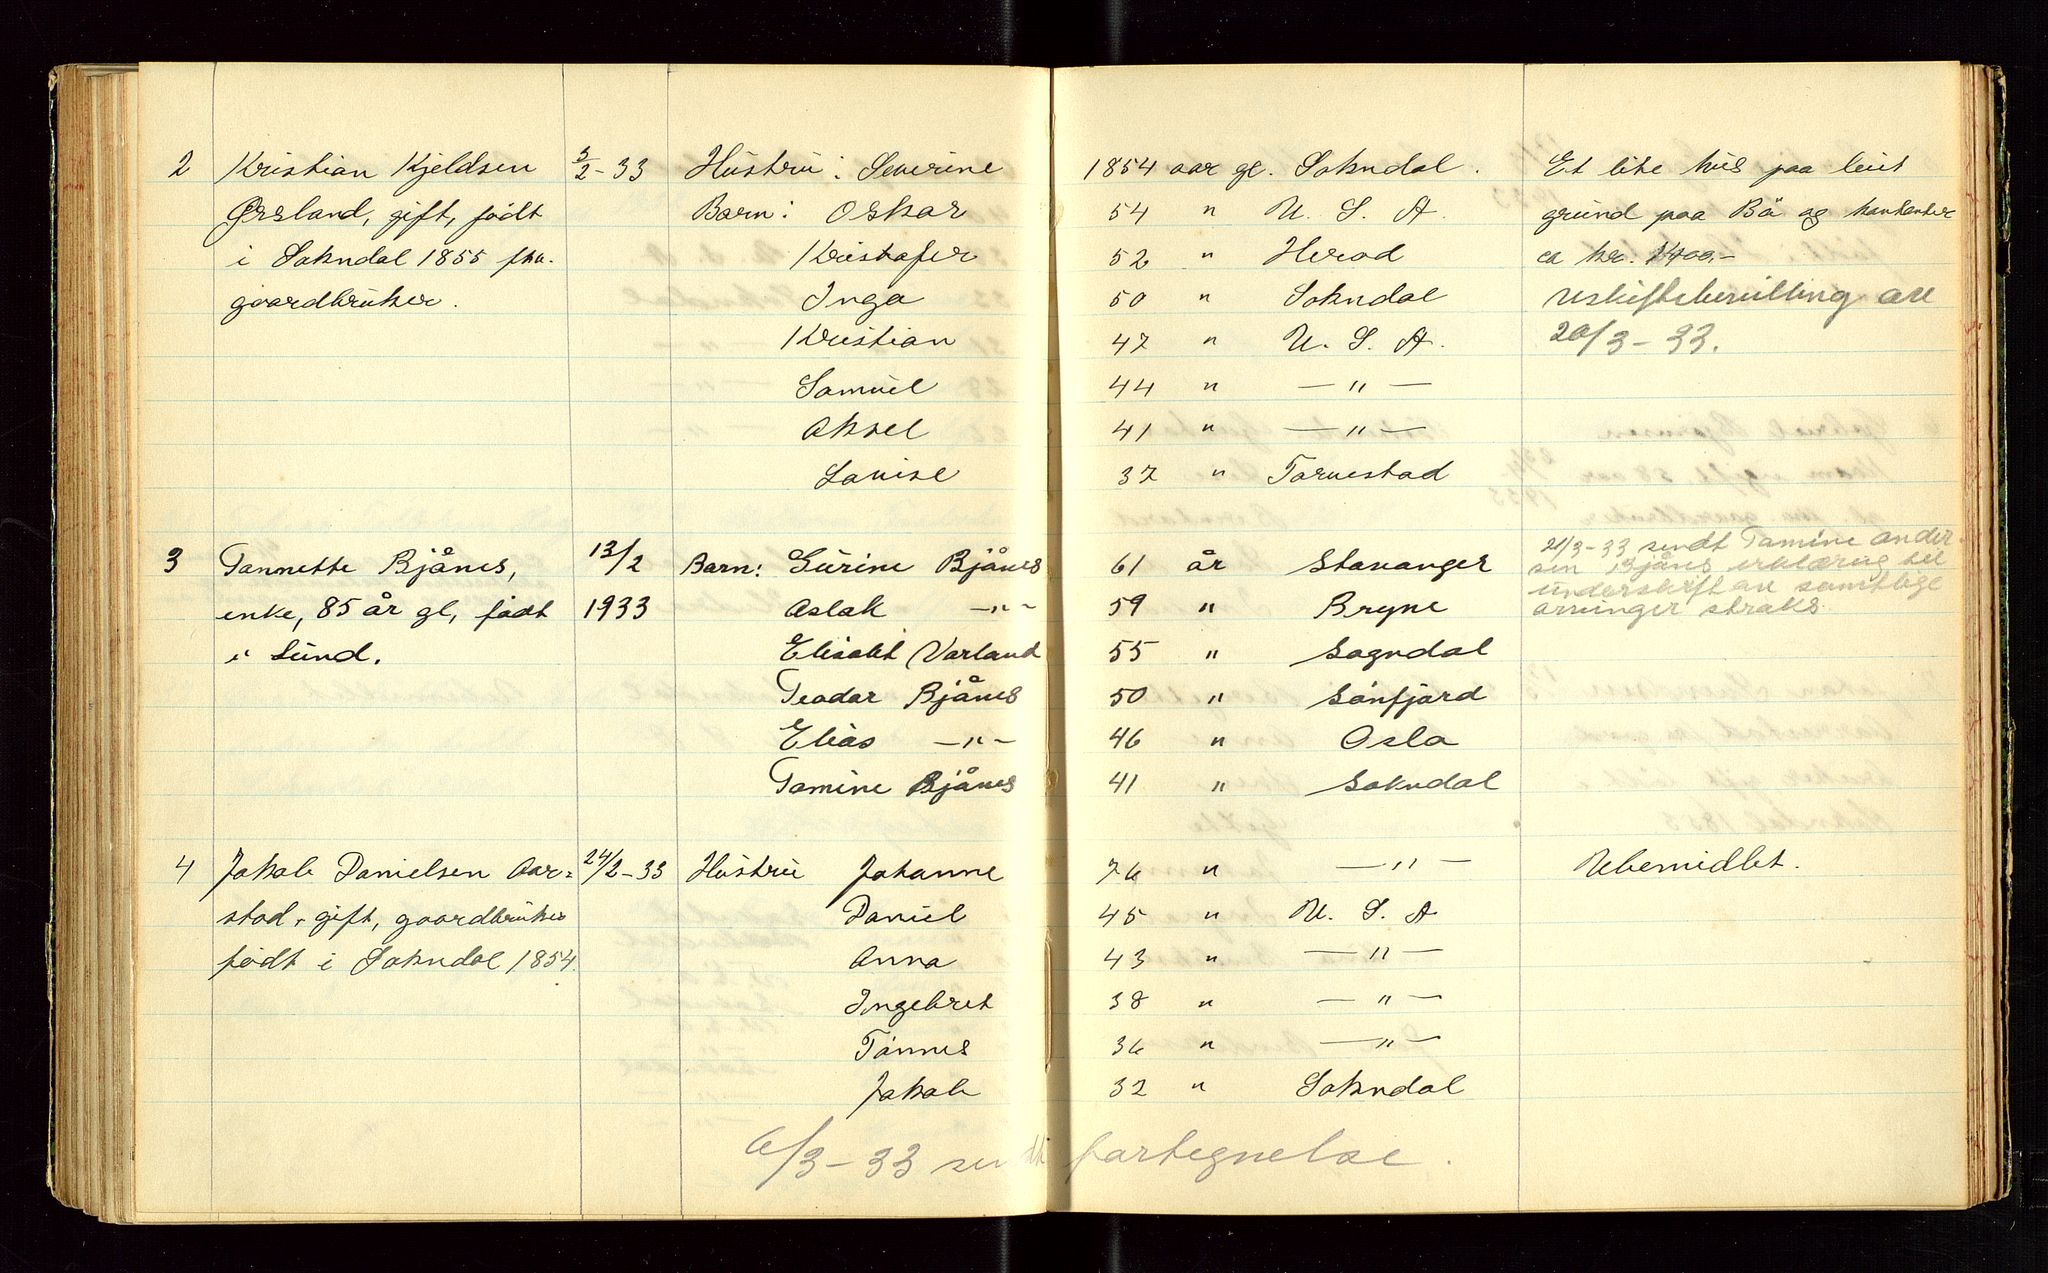 2 Kristian Kjeldsen 3/2-33 Hustru: Severine 1854 aar gl. Sokndal. Et lite hus paa leiet
Ørsland, gift, födt Barn: Oskar 54 " U. S. A. grund paa Bö og kontanter
i Sokndal 1855 fhv. Kristofer 52 " Herad ca kr. 1400.-
gaardbruker. Inga 50 " Sokndal Uskiftebevilling av
Kristian 47 " U. S. A. 20/3-33.
Samuel 44 " —"—
Aksel 41 " —"—
Lovise 37 " Tornestad
3 Tonnette Bjånes, 13/2 Barn: Surine Bjånes 61 år Stavanger 21/3-33 sendt Tomine Ander-
sen Bjånes erklæring til
enke, 85 år gl, födt 1933 Aslak —"— 59 " Bryne underskrift av samtlige
arvinger straks.
i Lund. Elisabet Varland 55 " Sogndal
Teodor Bjånes 50 " Sönfjord
Elias —"— 46 " Oslo
Tomine Bjånes 41 " Sokndal
4 Jakob Danielsen Aar= 24/2-33 Hustru Johanne 76 " —"— Ubemidlet.
stad, gift, gaardbruker Daniel 45 " U. S. A
födt i Sokndal 1854. Anna 43 " —"—
Ingebret 38 " —"—
Tönnes 36 " —"—
Jakob 32 " Sokndal
6/3-33 sendt fortegnelse.